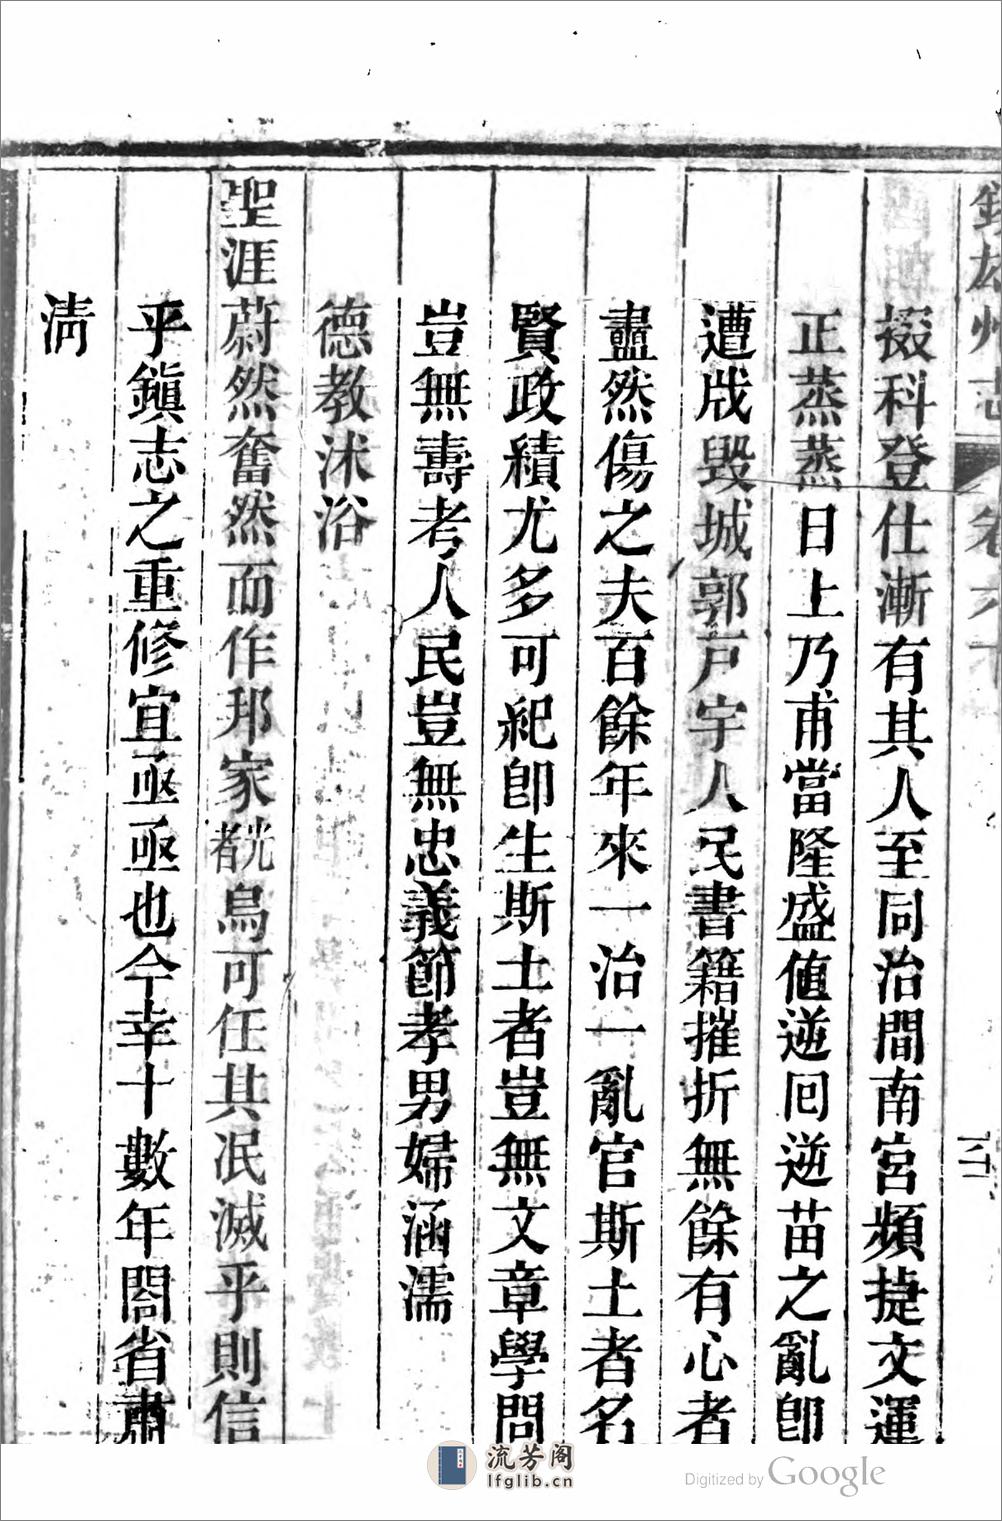 鎮雄州志
卷六下
掇科登仕漸有其人至同治間南宮頻捷文運
正蒸蒸日上乃甫當隆盛値逆回逆苗之亂卽
遭戕毀城郭戸宇人民書籍摧折無餘有心者
盡然傷之夫百餘年來一治一亂官斯土者名
賢政績尤多可紀卽生斯土者豈無文章學問
豈無壽考人民豈無忠義節孝男婦涵濡
德教沐浴
聖涯蔚然奮然而作邦家光者烏可任其泯滅乎則信
乎鎮志之重修宜亟亟也今幸十數年閤省肅
淸
流芳阁
lfglib.cn
Digitized by Google